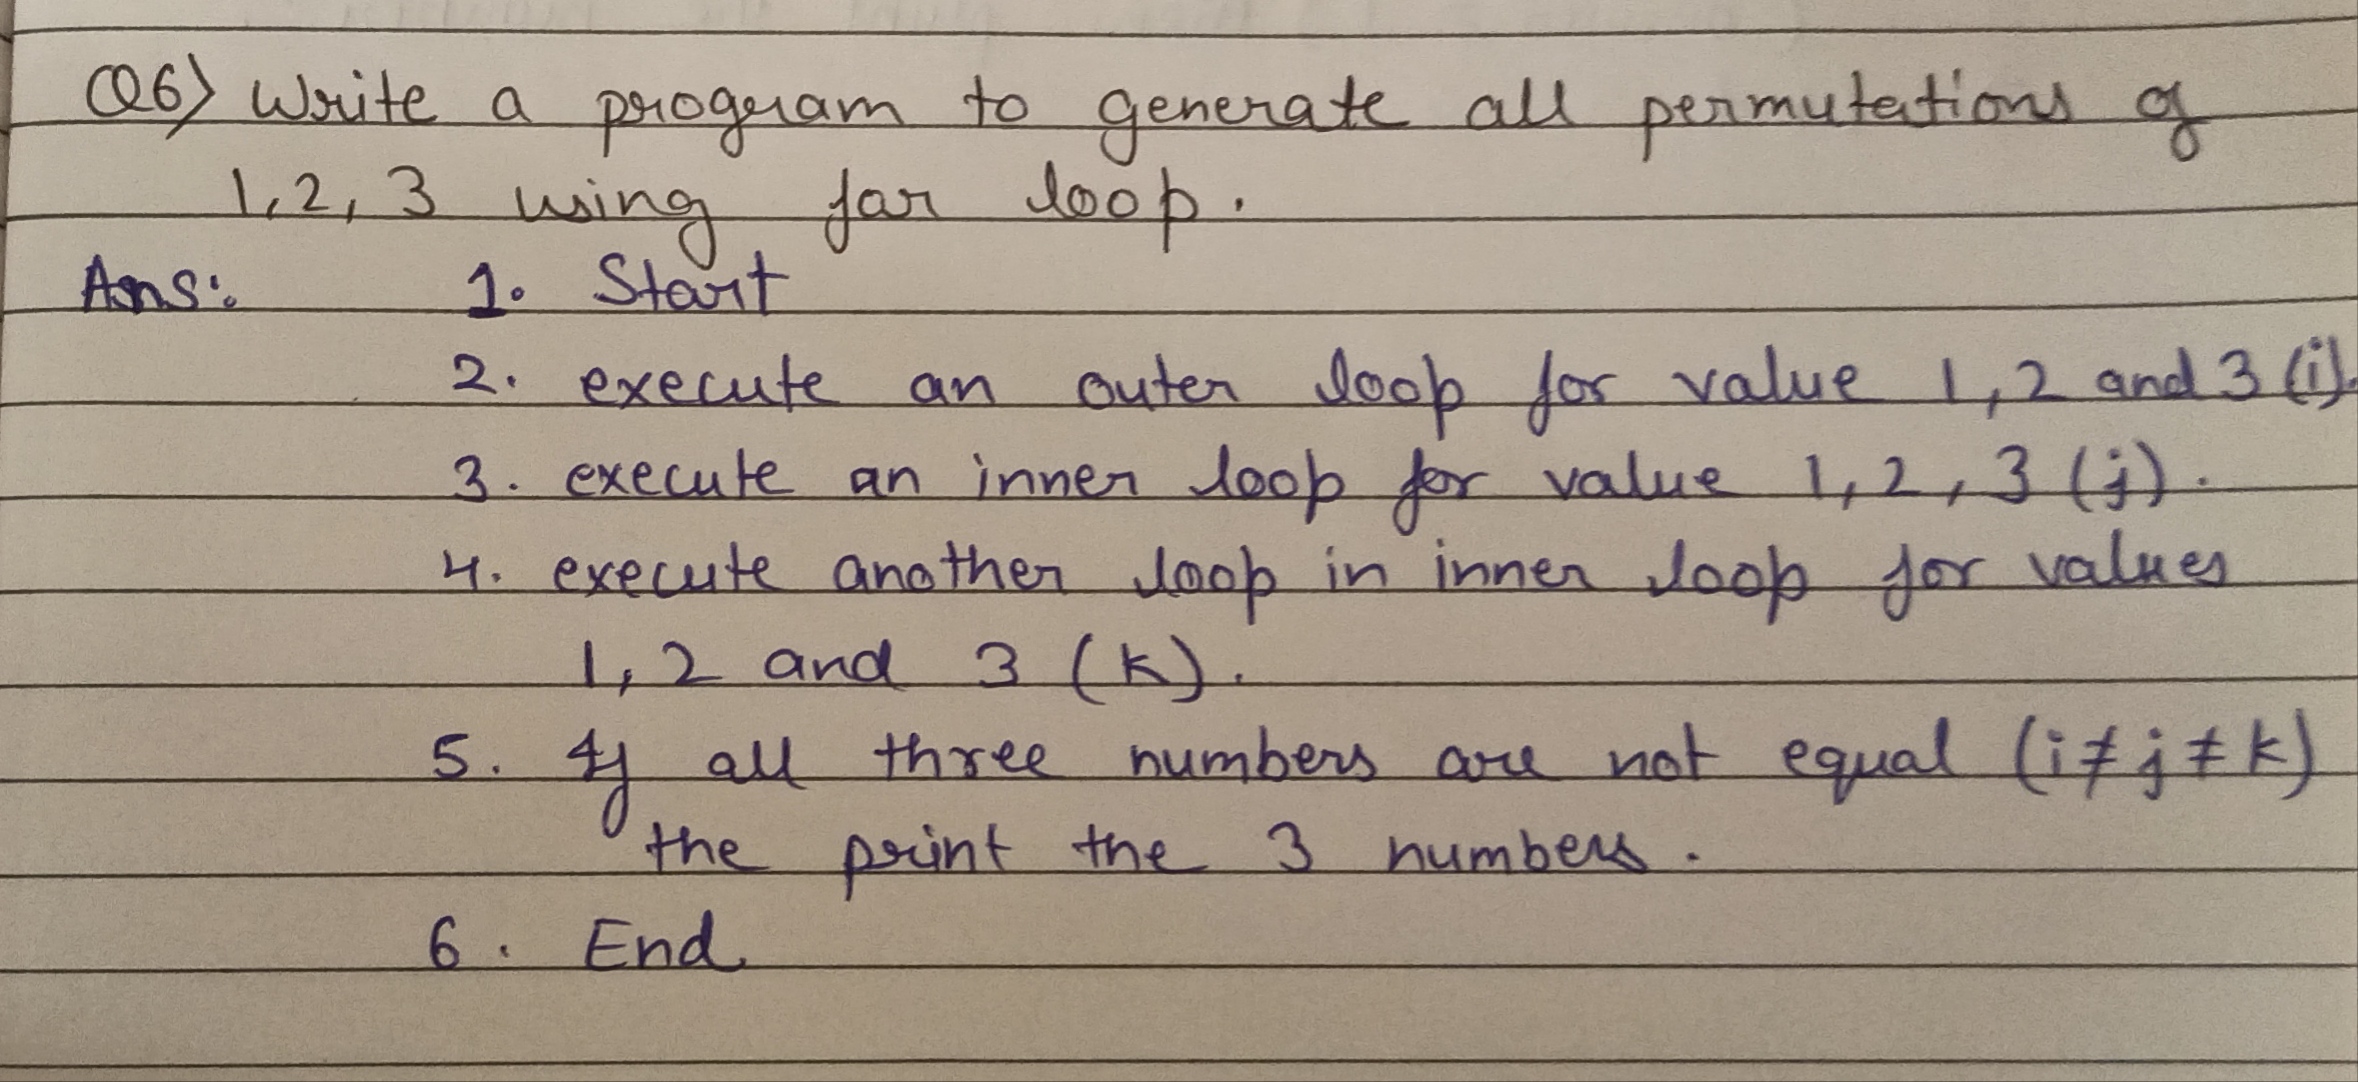 Q6) Write a program to generate all permutations of
1, 2, 3 using for loop.
Ans: 1. Start
2. execute an outer loop for value 1, 2 and 3 (i).
3. execute an inner loop for value 1, 2, 3 (j).
4. execute another loop in inner loop for values
1, 2 and 3 (k).
5. If all three numbers are not equal (i ≠ j ≠ k)
the print the 3 numbers.
6. End